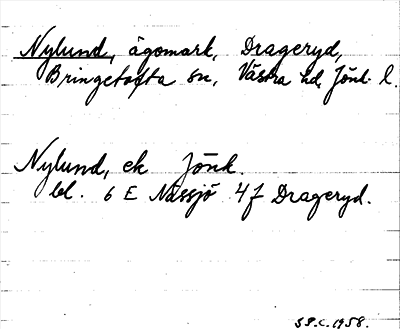 Nylund, ägomark, Drageryd,
Bringetofta sn, Västra hd, Jönk. l.
Nylund, ek Jönk.
bl. 6 E Nässjö 4f Drageryd.
SS.C.1958.